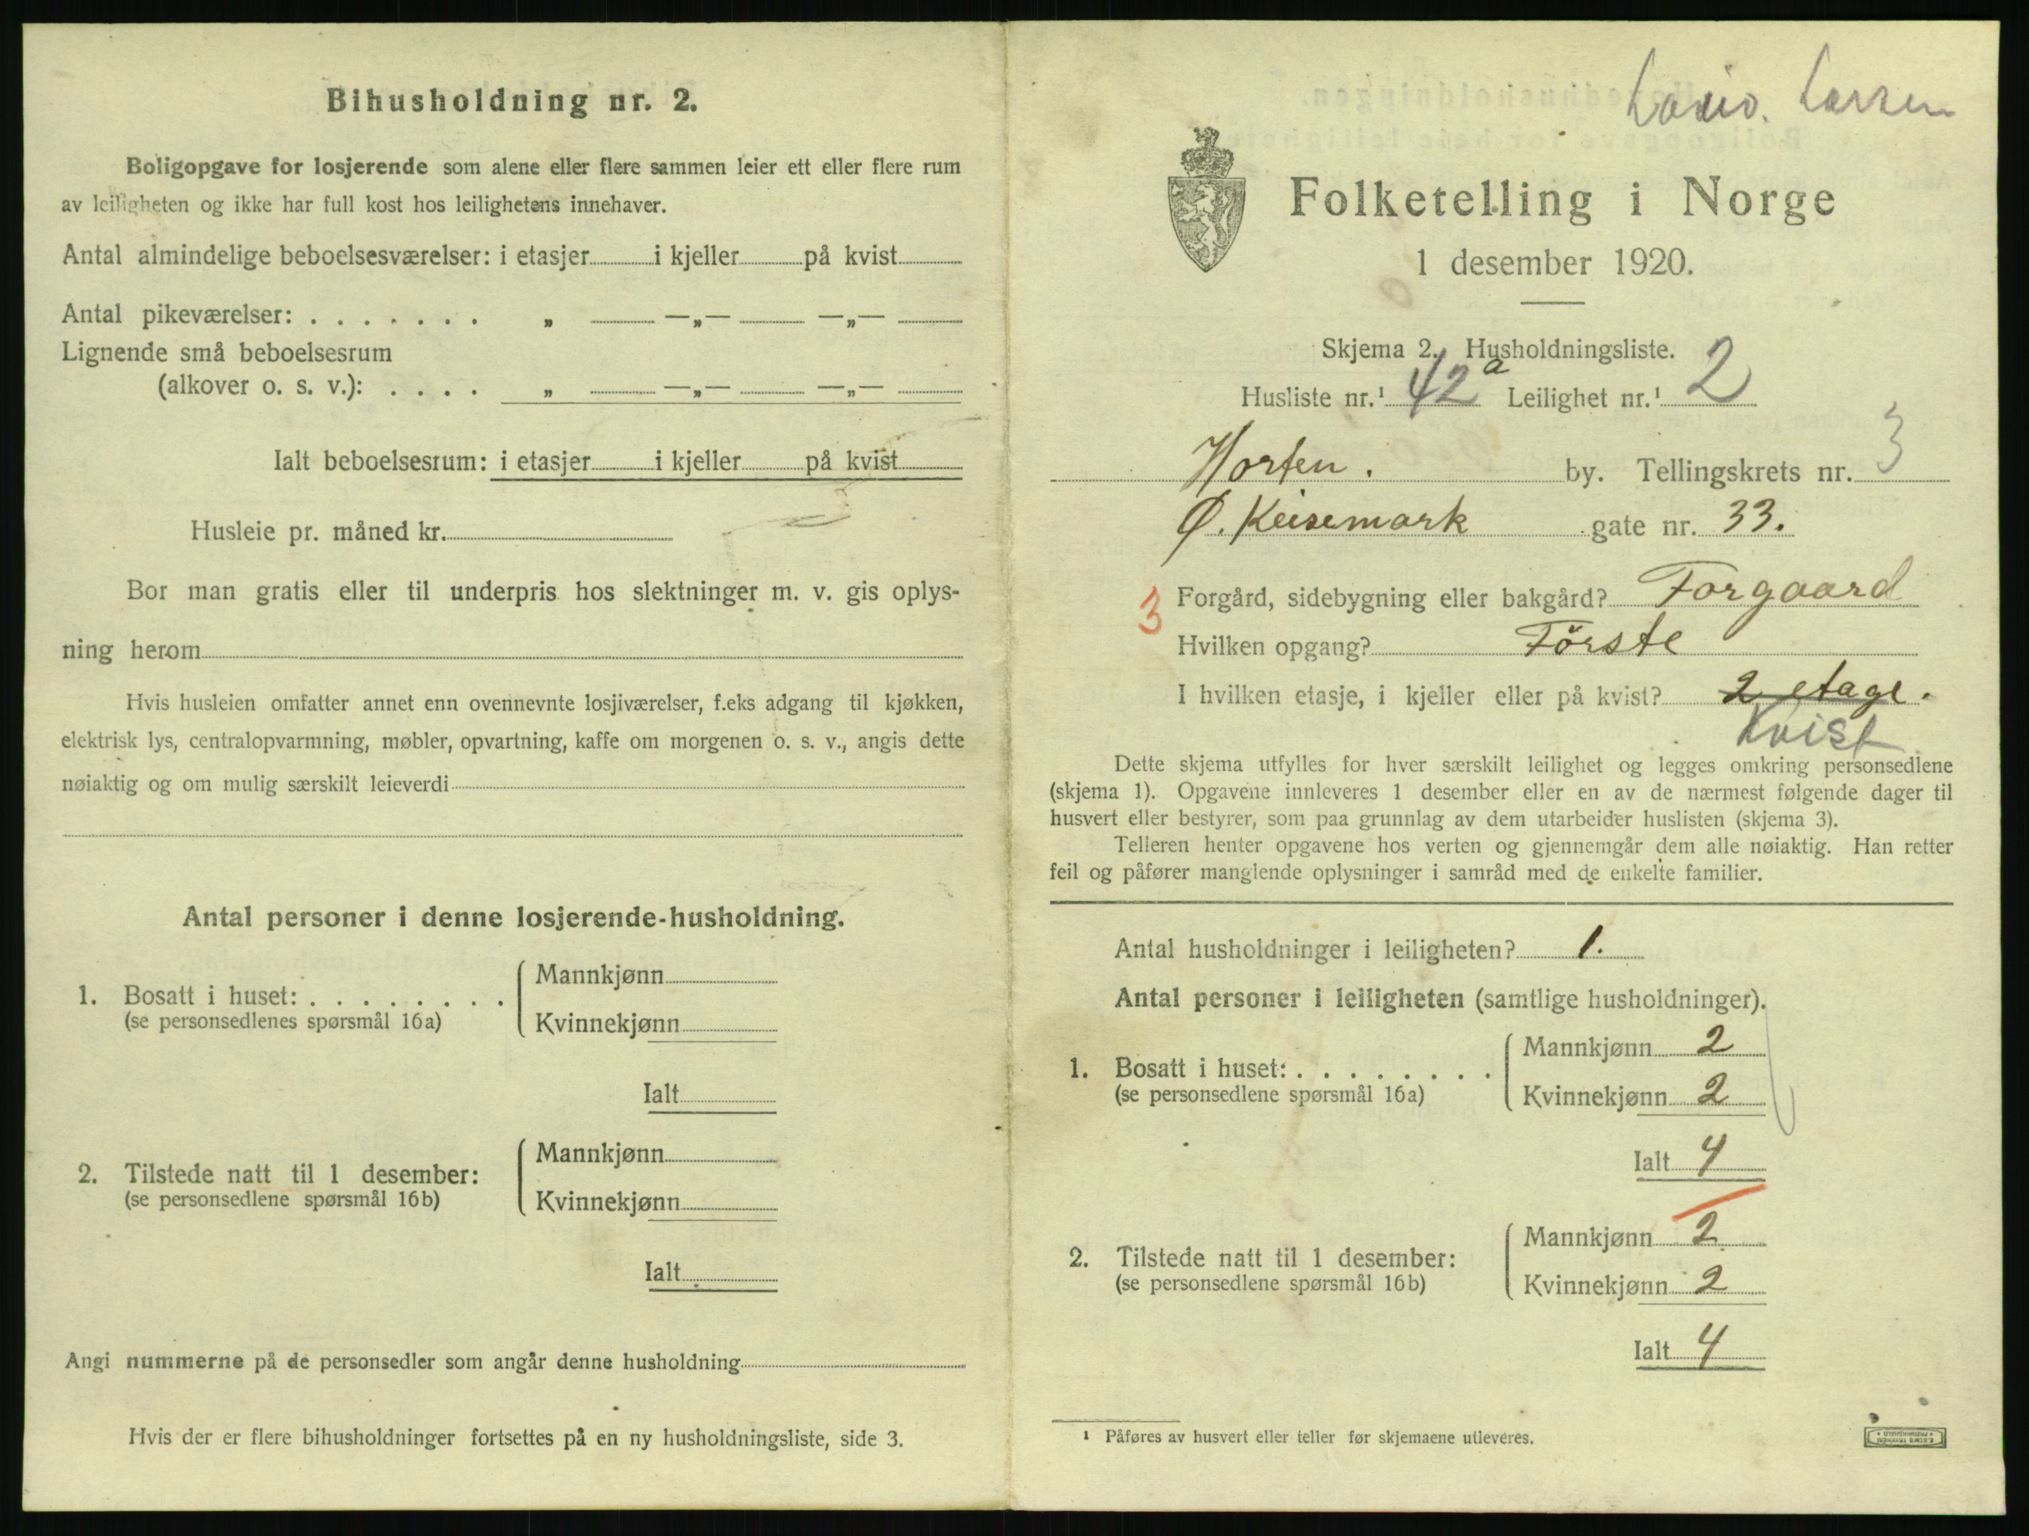 Bihusholdning nr. 2.
Boligopgave for losjerende som alene eller flere sammen leier ett eller flere rum
av leiligheten og ikke har full kost hos leilighetens innehaver.
Antal almindelige beboelsesværelser: i etasjer i kjeller på kvist
Antal pikeværelser: . . . . . . . „ —„— —„—
Lignende små beboelsesrum
(alkover o. s. v.): . . . . „ —„— —„—
Ialt beboelsesrum: i etasjer i kjeller på kvist
Husleie pr. måned kr.
Bor man gratis eller til underpris hos slektninger m. v. gis oplys-
ning herom
Hvis husleien omfatter annet enn ovennevnte losjiværelser, f.eks adgang til kjøkken,
elektrisk lys, centralopvarmning, møbler, opvartning, kaffe om morgenen o. s. v., angis dette
nøiaktig og om mulig særskilt leieverdi
Antal personer i denne losjerende-husholdning.
1. Bosatt i huset: . . . . . . . . Mannkjønn
(se personsedlenes spørsmål 16a) Kvinnekjønn
Ialt
2. Tilstede natt til 1 desember: Mannkjønn
(se personsedlene spørsmål 16b) Kvinnekjønn
Ialt
Angi nummerne på de personsedler som angår denne husholdning
Hvis der er flere bihusholdninger fortsettes på en ny husholdningsliste, side 3.
Larsen
Folketelling i Norge
1 desember 1920.
Skjema 2. Husholdningsliste.
Husliste nr.¹ 42a Leilighet nr.¹ 2
Horten. by. Tellingskrets nr. 3
Ø. Keisemark gate nr. 33.
3 Forgård, sidebygning eller bakgård? Forgaard
Hvilken opgang? Første
I hvilken etasje, i kjeller eller på kvist? 2 etage.
Kvist
Dette skjema utfylles for hver særskilt leilighet og legges omkring personsedlene
(skjema 1). Opgavene innleveres 1 desember eller en av de nærmest følgende dager til
husvert eller bestyrer, som paa grunnlag av dem utarbeider huslisten (skjema 3).
Telleren henter opgavene hos verten og gjennemgår dem alle nøiaktig. Han retter
feil og påfører manglende oplysninger i samråd med de enkelte familier.
Antal husholdninger i leiligheten? 1.
Antal personer i leiligheten (samtlige husholdninger).
1. Bosatt i huset: . . . . . . . . Mannkjønn 2
(se personsedlene spørsmål 16a) Kvinnekjønn 2
Ialt 4
2. Tilstede natt til 1 desember: Mannkjønn 2
(se personsedlene spørsmål 16b) Kvinnekjønn 2
Ialt 4
¹ Påføres av husvert eller teller før skjemaene utleveres.